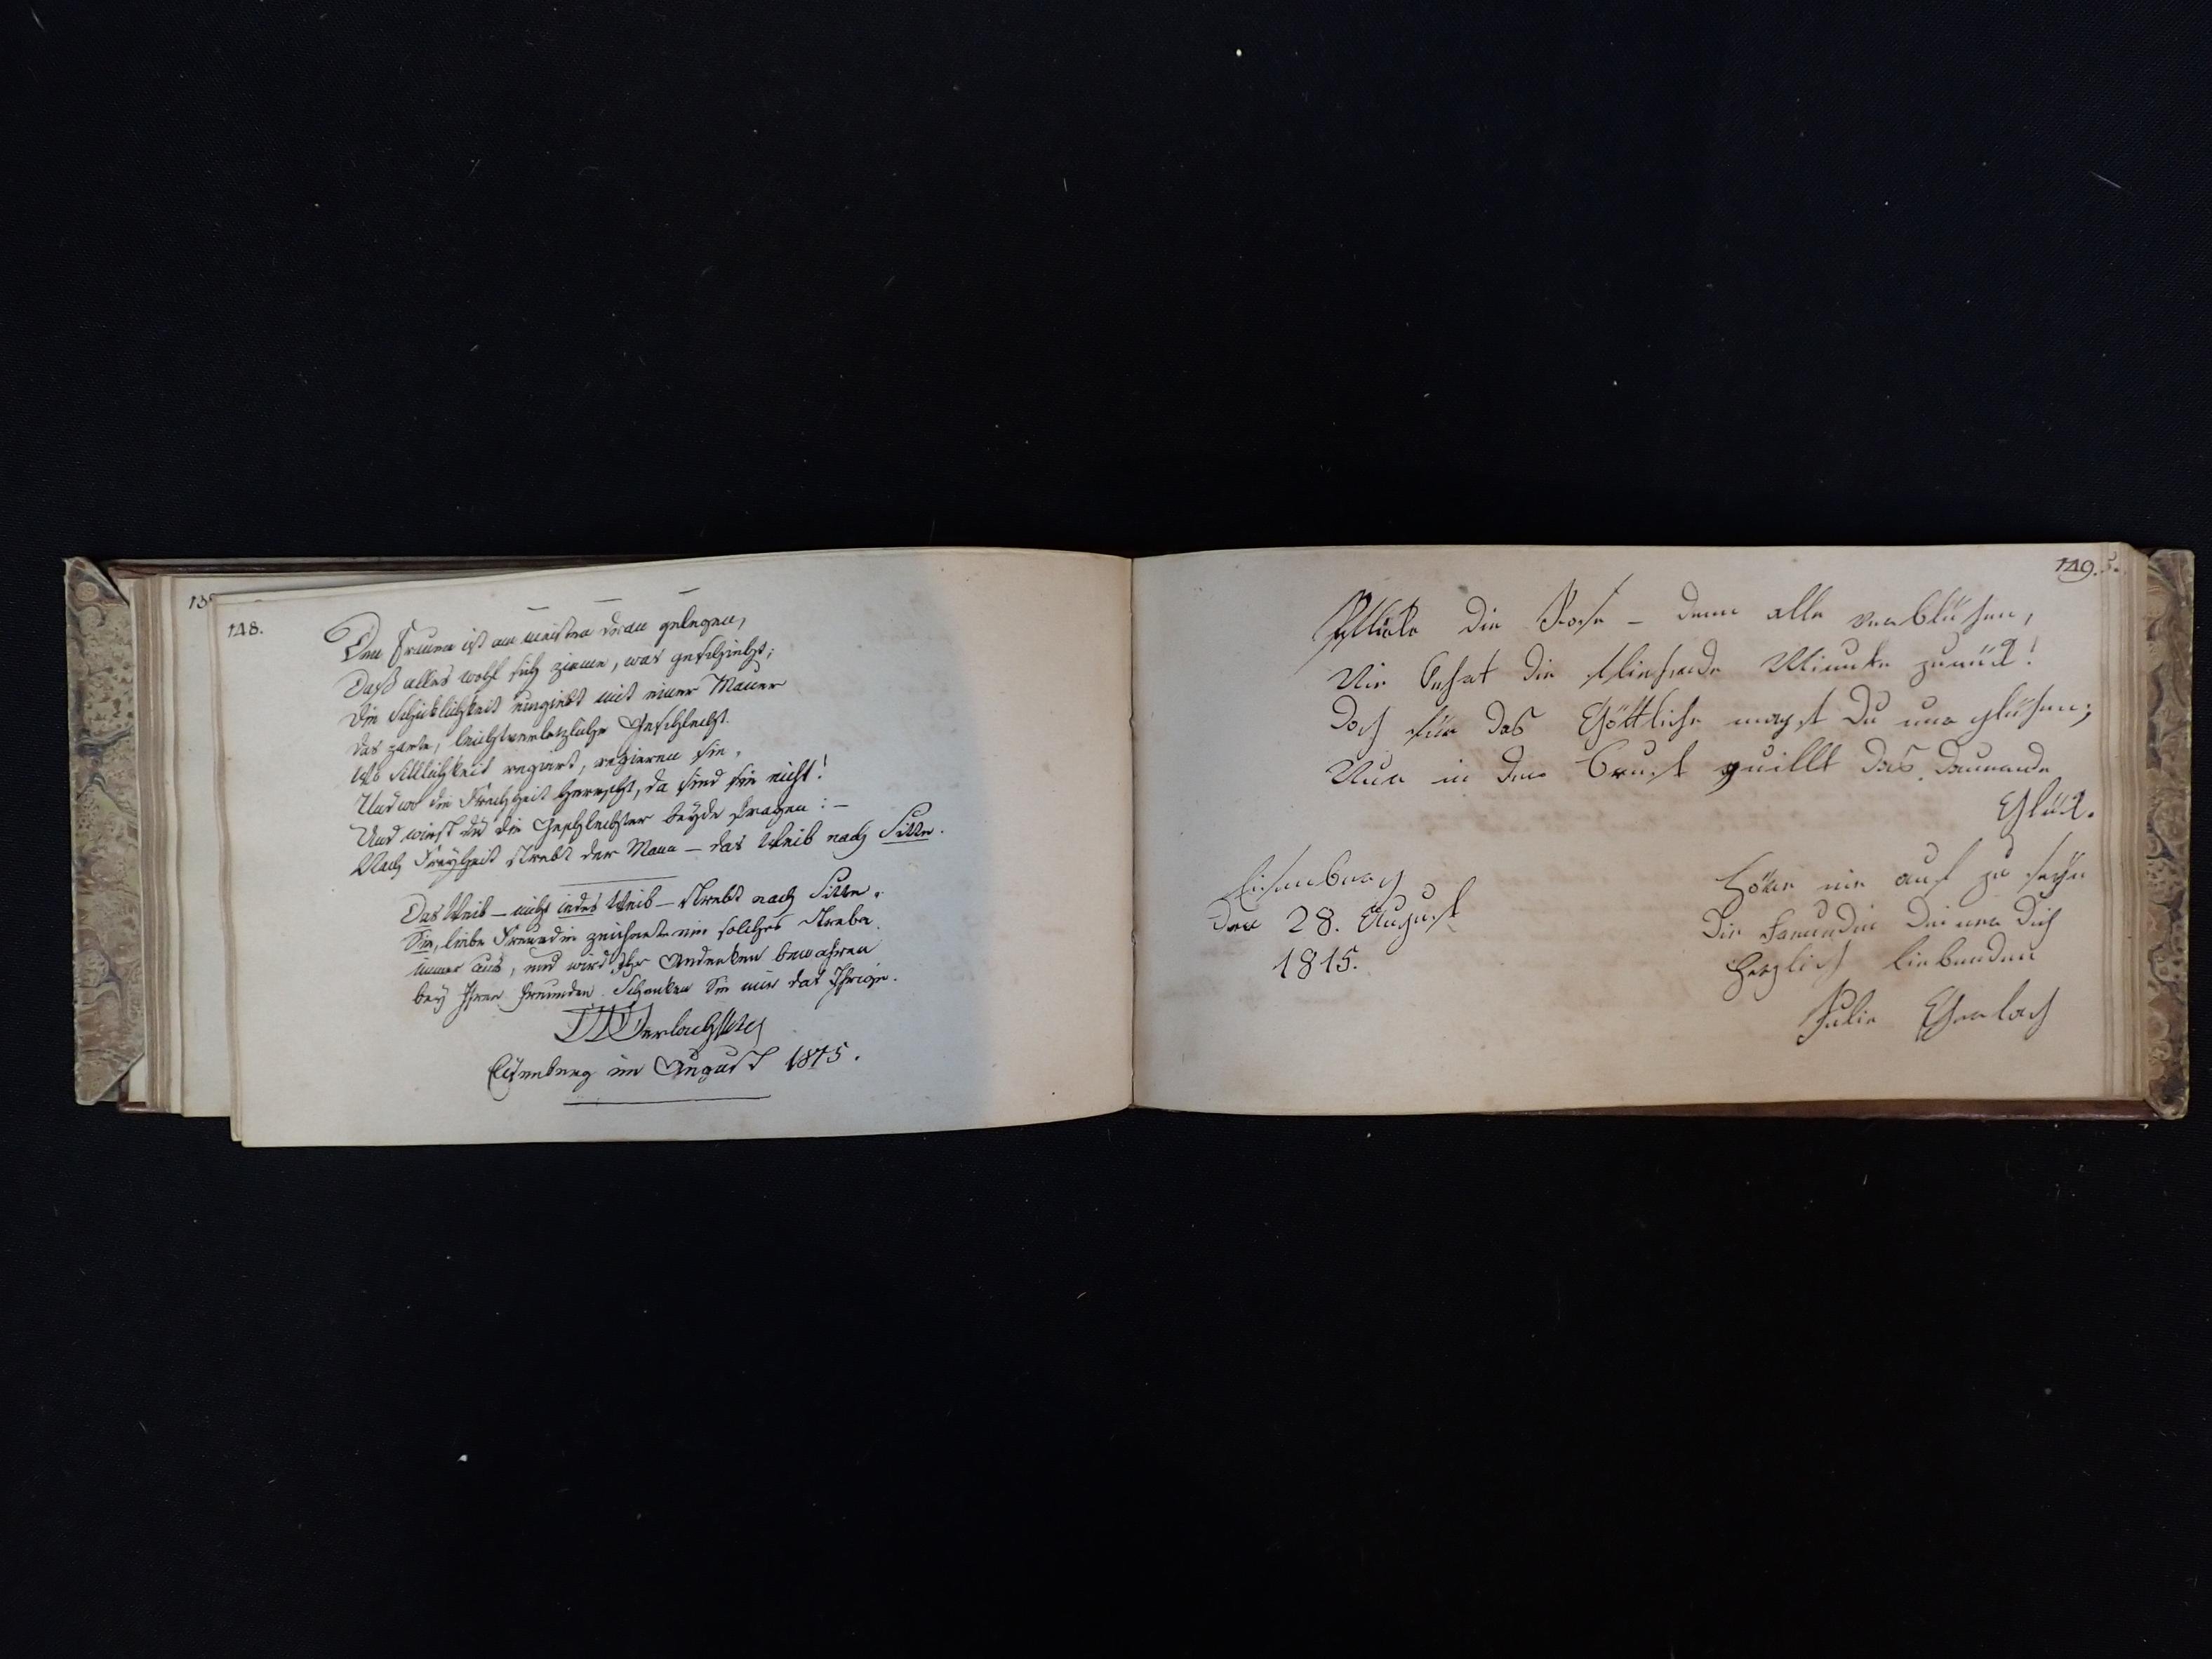 13
148.
Den Frauen ist am meisten daran gelegen,
Daß alles wohl sich zieme, was geschieht;
Die Schicklichkeit umgiebt mit einer Mauer
das zarte, leichtverletzliche Geschlecht.
Wo Sittlichkeit regiert, regieren sie,
Und wo die Frechheit herrscht, da sind sie nicht!
Und wirst du die Geschlechter beyde fragen: –
Nach Freyheit strebt der Mann – das Weib nach Sitte.
Das Weib – nicht jedes Weib – strebt nach Sitte.
Sie, liebe Freundin zeichnete ein solches Streben
immer aus, und wird Ihr Andenken bewahren
bey Ihren Freunden. Schenken Sie mir das Ihrige.
Eisenberg im August 1815.
149.
Pflücke die Rose – denn alle verblühen,
Nie kehrt die fliehende Minute zurück!
Doch für das Göttliche magst Du nur glühen;
Nur in der Brust quillt das daurende
Glück.
Eisenberg
den 28. August
1815.
Höre nie auf zu seyn
Die Freundin Deiner Dich
herzlich liebenden
Julie Gerlach